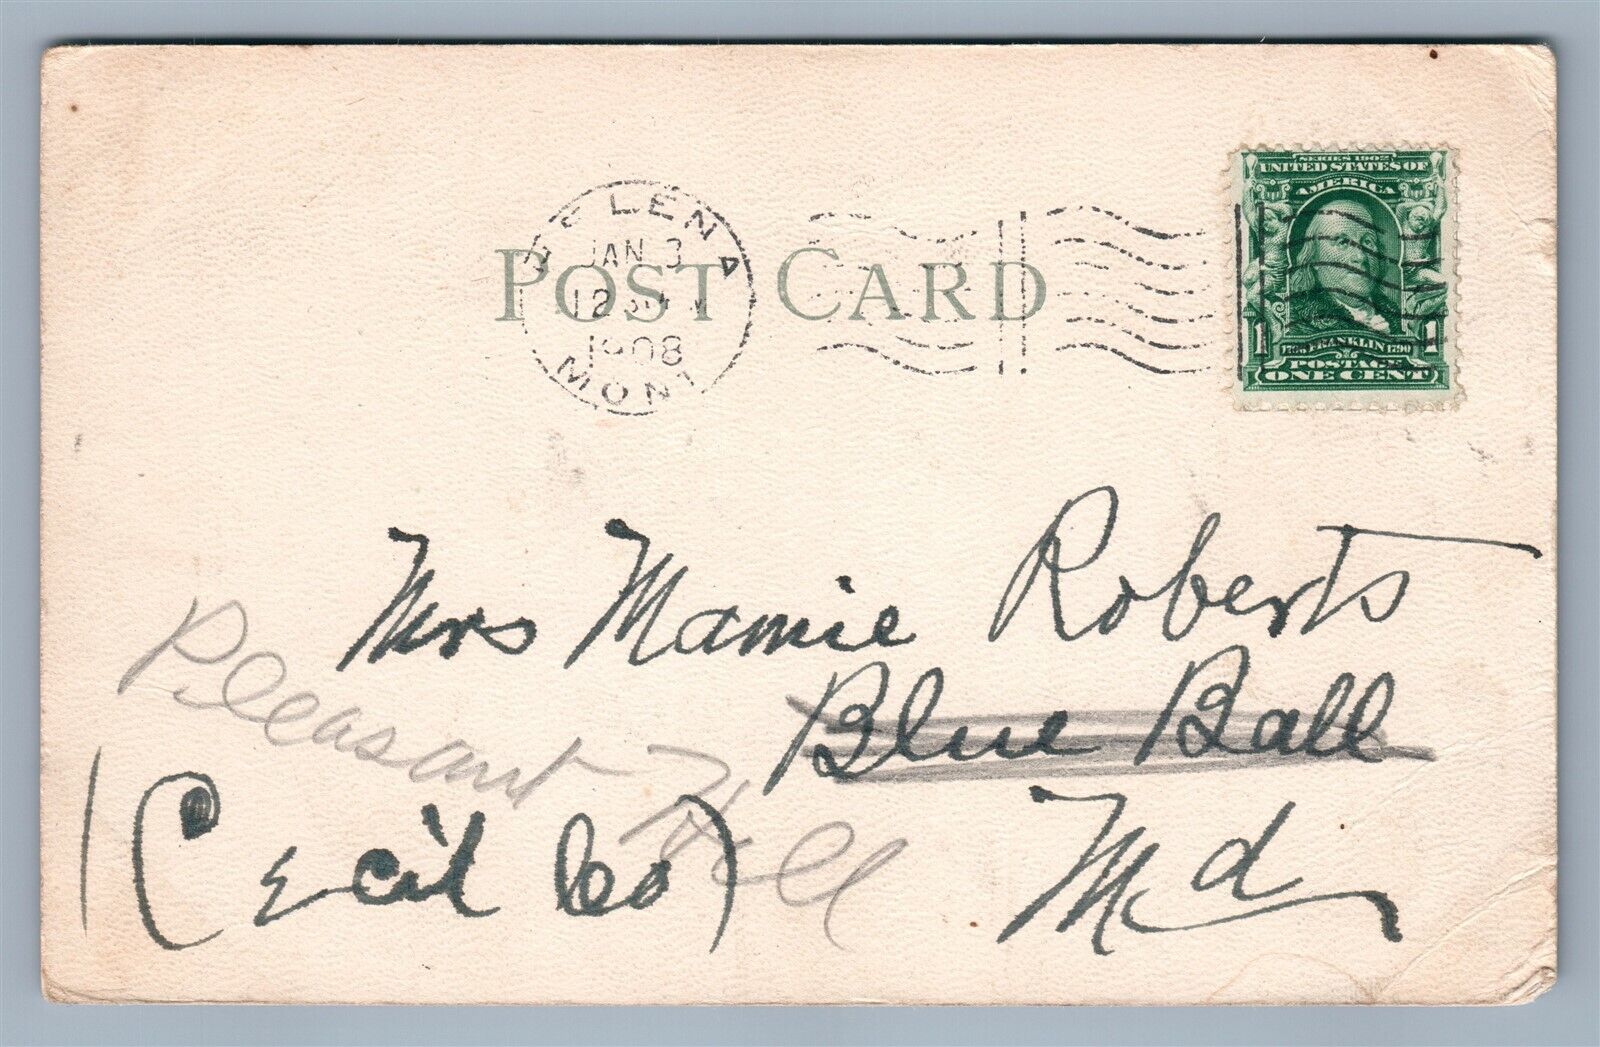 SERIES 1902
UNITED STATES OF
AMERICA
HELENA
JAN 3
1908
MONT.
POST CARD
1 1706 FRANKLIN 1790 1
POSTAGE
ONE CENT
Mrs Mamie Roberts
Blue Ball
Pleasant Hill
(Cecil Co) Md